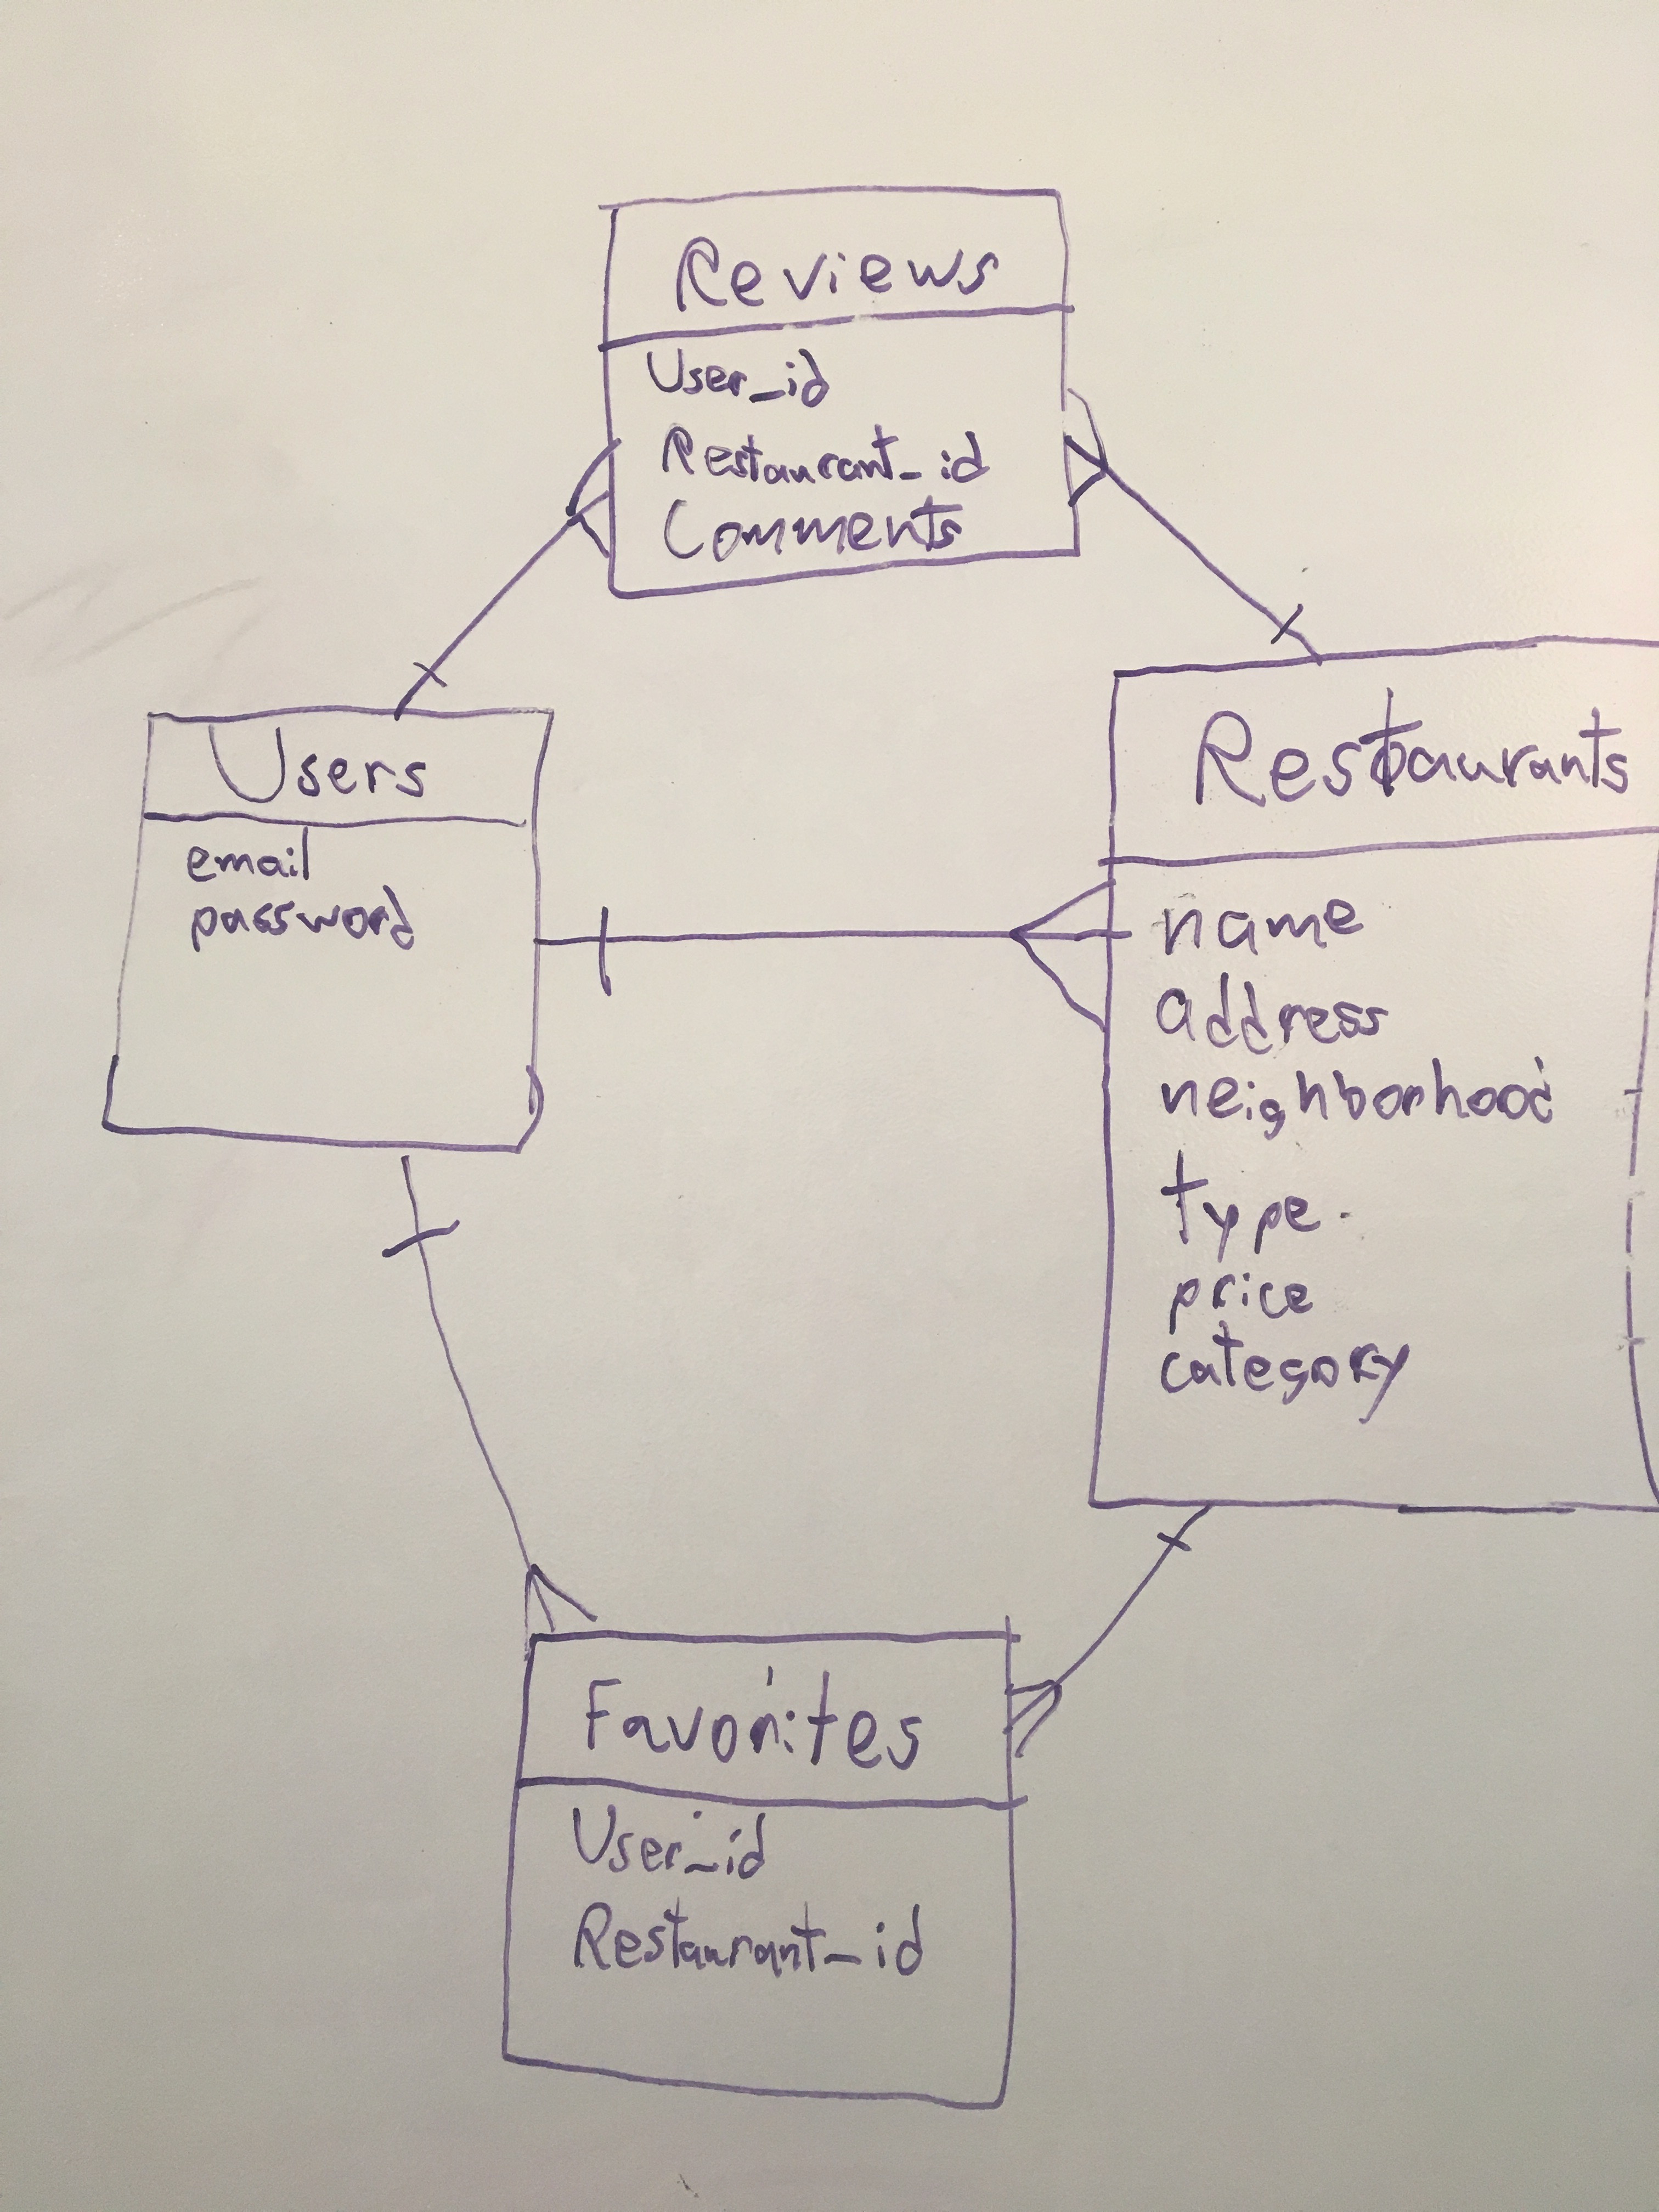 Reviews
User_id
Restaurant_id
Comments
Users
email
password
Restaurants
name
address
neighborhood
type
price
category
Favorites
User_id
Restaurant_id